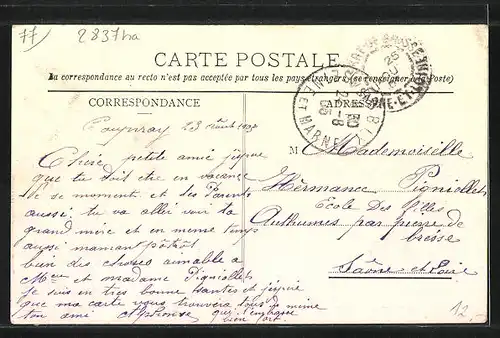 77
2837ha
CARTE POSTALE
La correspondance au recto n'est pas acceptée par tous les pays étrangers (se renseigner à la Poste)
CORRESPONDANCE
ADRESSE
ET MARNE
23 août
Chère petite amie
que tu doit etre en vacance
se de moment et tes Parents
aussi tu va aller voir ta
grand mère et en meme temps
aussi maman
bien des choses aimable a
Mr et madame Pigniollet
je suis en très bonne santes et
que ma carte vous trouvera tous de meme
ton ami Alphonse qui t'embrasse
bien fort
M Mademoiselle
Hermance Pigniollet
Ecole Des filles
Authumes par pierre de
bresse
Saône et Loire
12.-